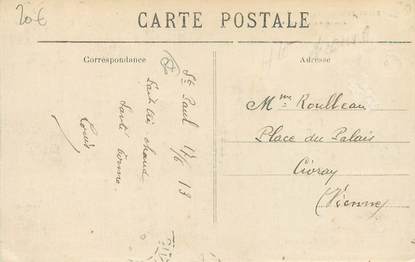 20€
CARTE POSTALE
Correspondance
Adresse
St Paul 17/6 13
chaud
Santé bonne
Louis
Mme Roulleau
Place du Palais
Civray
(Vienne)